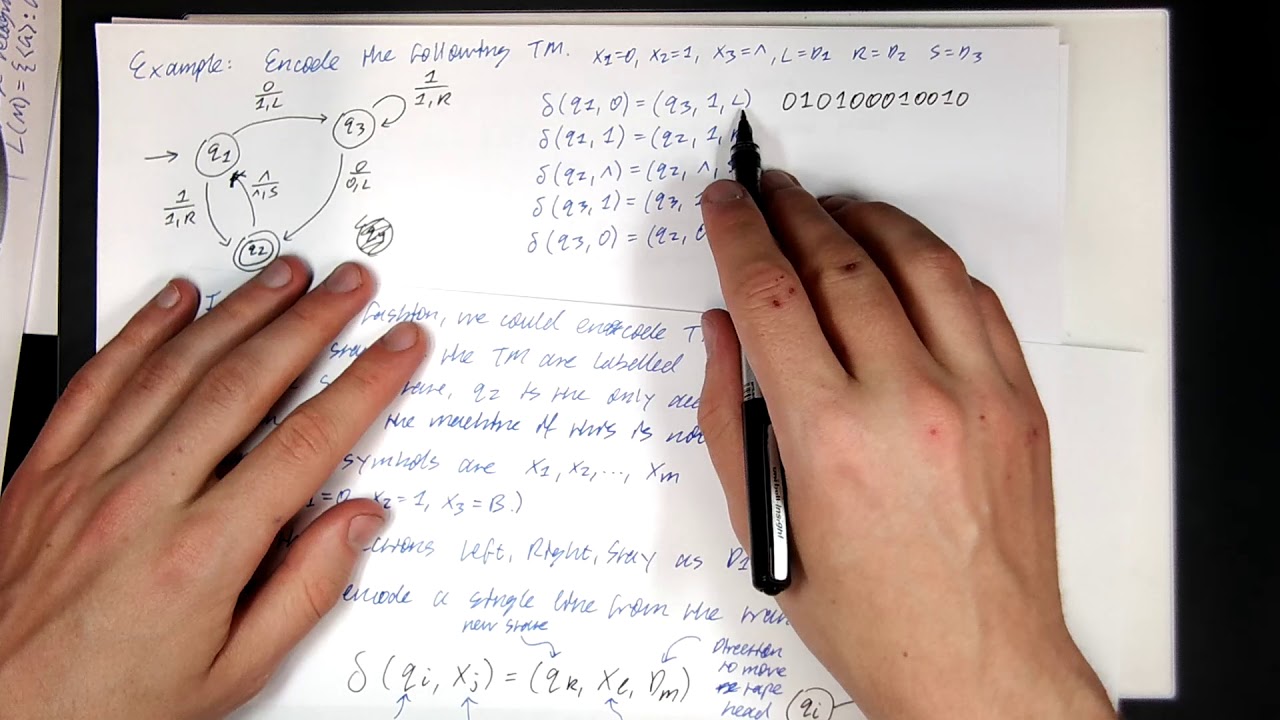 Example: Encode the following TM. X1=0, X2=1, X3=Λ, L=D1 R=D2 S=D3
0
1,L
1
1,R
q1
q3
Λ
Λ,S
0
0,L
1
1,R
q2
δ(q1, 0) = (q3, 1, L) 010100010010
δ(q1, 1) = (q2, 1,
δ(q2, Λ) = (q2, Λ,
δ(q3, 1) = (q3, 1
δ(q3, 0) = (q2, 0
fashion, we could encode
the TM are labelled
q2 is the only
the machine if this is not
symbols are X1, X2, ..., Xm
X2=1, X3=B.)
Left, Right, Stay as D1
encode a single line from the
new state
δ(qi, Xj) = (qk, Xl, Dm)
Direction
to move
tape
head
qi
L(M) = {L(a):